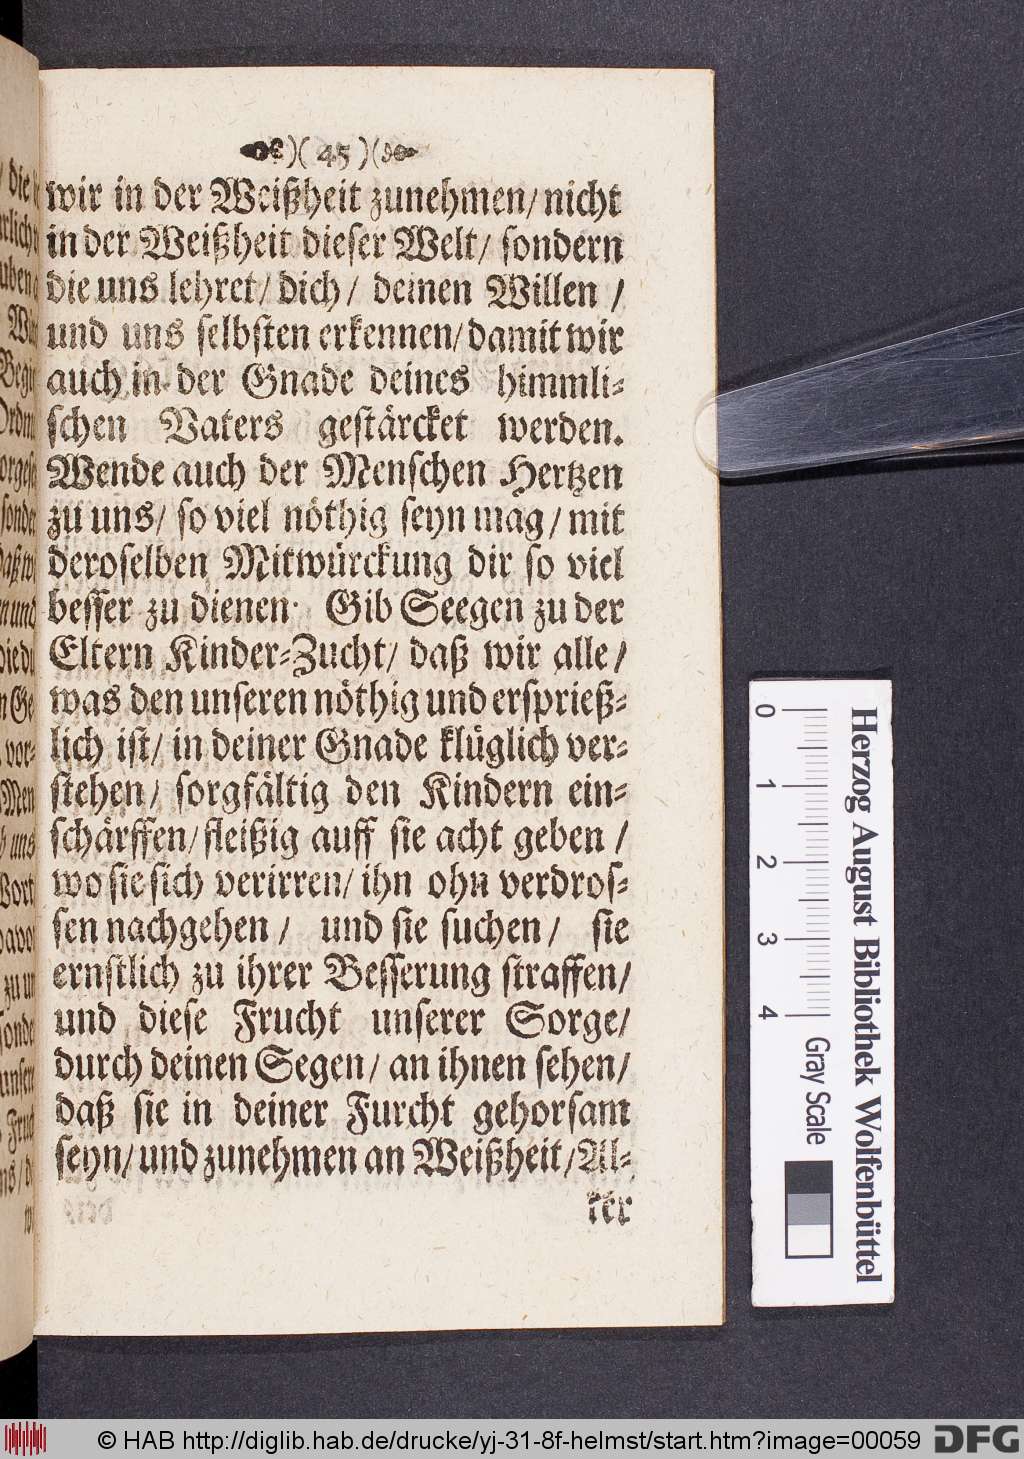 )( 45 )(
wir in der Weißheit zunehmen/ nicht
in der Weißheit dieser Welt/ sondern
die uns lehret/ dich/ deinen Willen /
und uns selbsten erkennen/ damit wir
auch in der Gnade deines himmli-
schen Vaters gestärcket werden.
Wende auch der Menschen Hertzen
zu uns/ so viel nöthig seyn mag/ mit
deroselben Mitwürckung dir so viel
besser zu dienen. Gib Seegen zu der
Eltern Kinder-Zucht/ daß wir alle/
was den unseren nöthig und ersprieß-
lich ist/ in deiner Gnade klüglich ver-
stehen/ sorgfältig den Kindern ein-
schärffen/ fleißig auff sie acht geben /
wo sie sich verirren/ ihn ohn verdros-
sen nachgehen / und sie suchen/ sie
ernstlich zu ihrer Besserung straffen/
und diese Frucht unserer Sorge/
durch deinen Segen/ an ihnen sehen/
daß sie in deiner Furcht gehorsam
seyn/ und zunehmen an Weißheit/ Al-
ter
die
Herzog August Bibliothek Wolfenbüttel
0 1 2 3 4
Gray Scale
© HAB http://diglib.hab.de/drucke/yj-31-8f-helmst/start.htm?image=00059
DFG